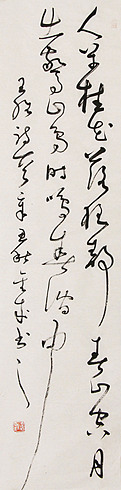 人閒桂花落夜靜春山空月
出驚山鳥時鳴春澗中
王維詩 辛丑秋 書